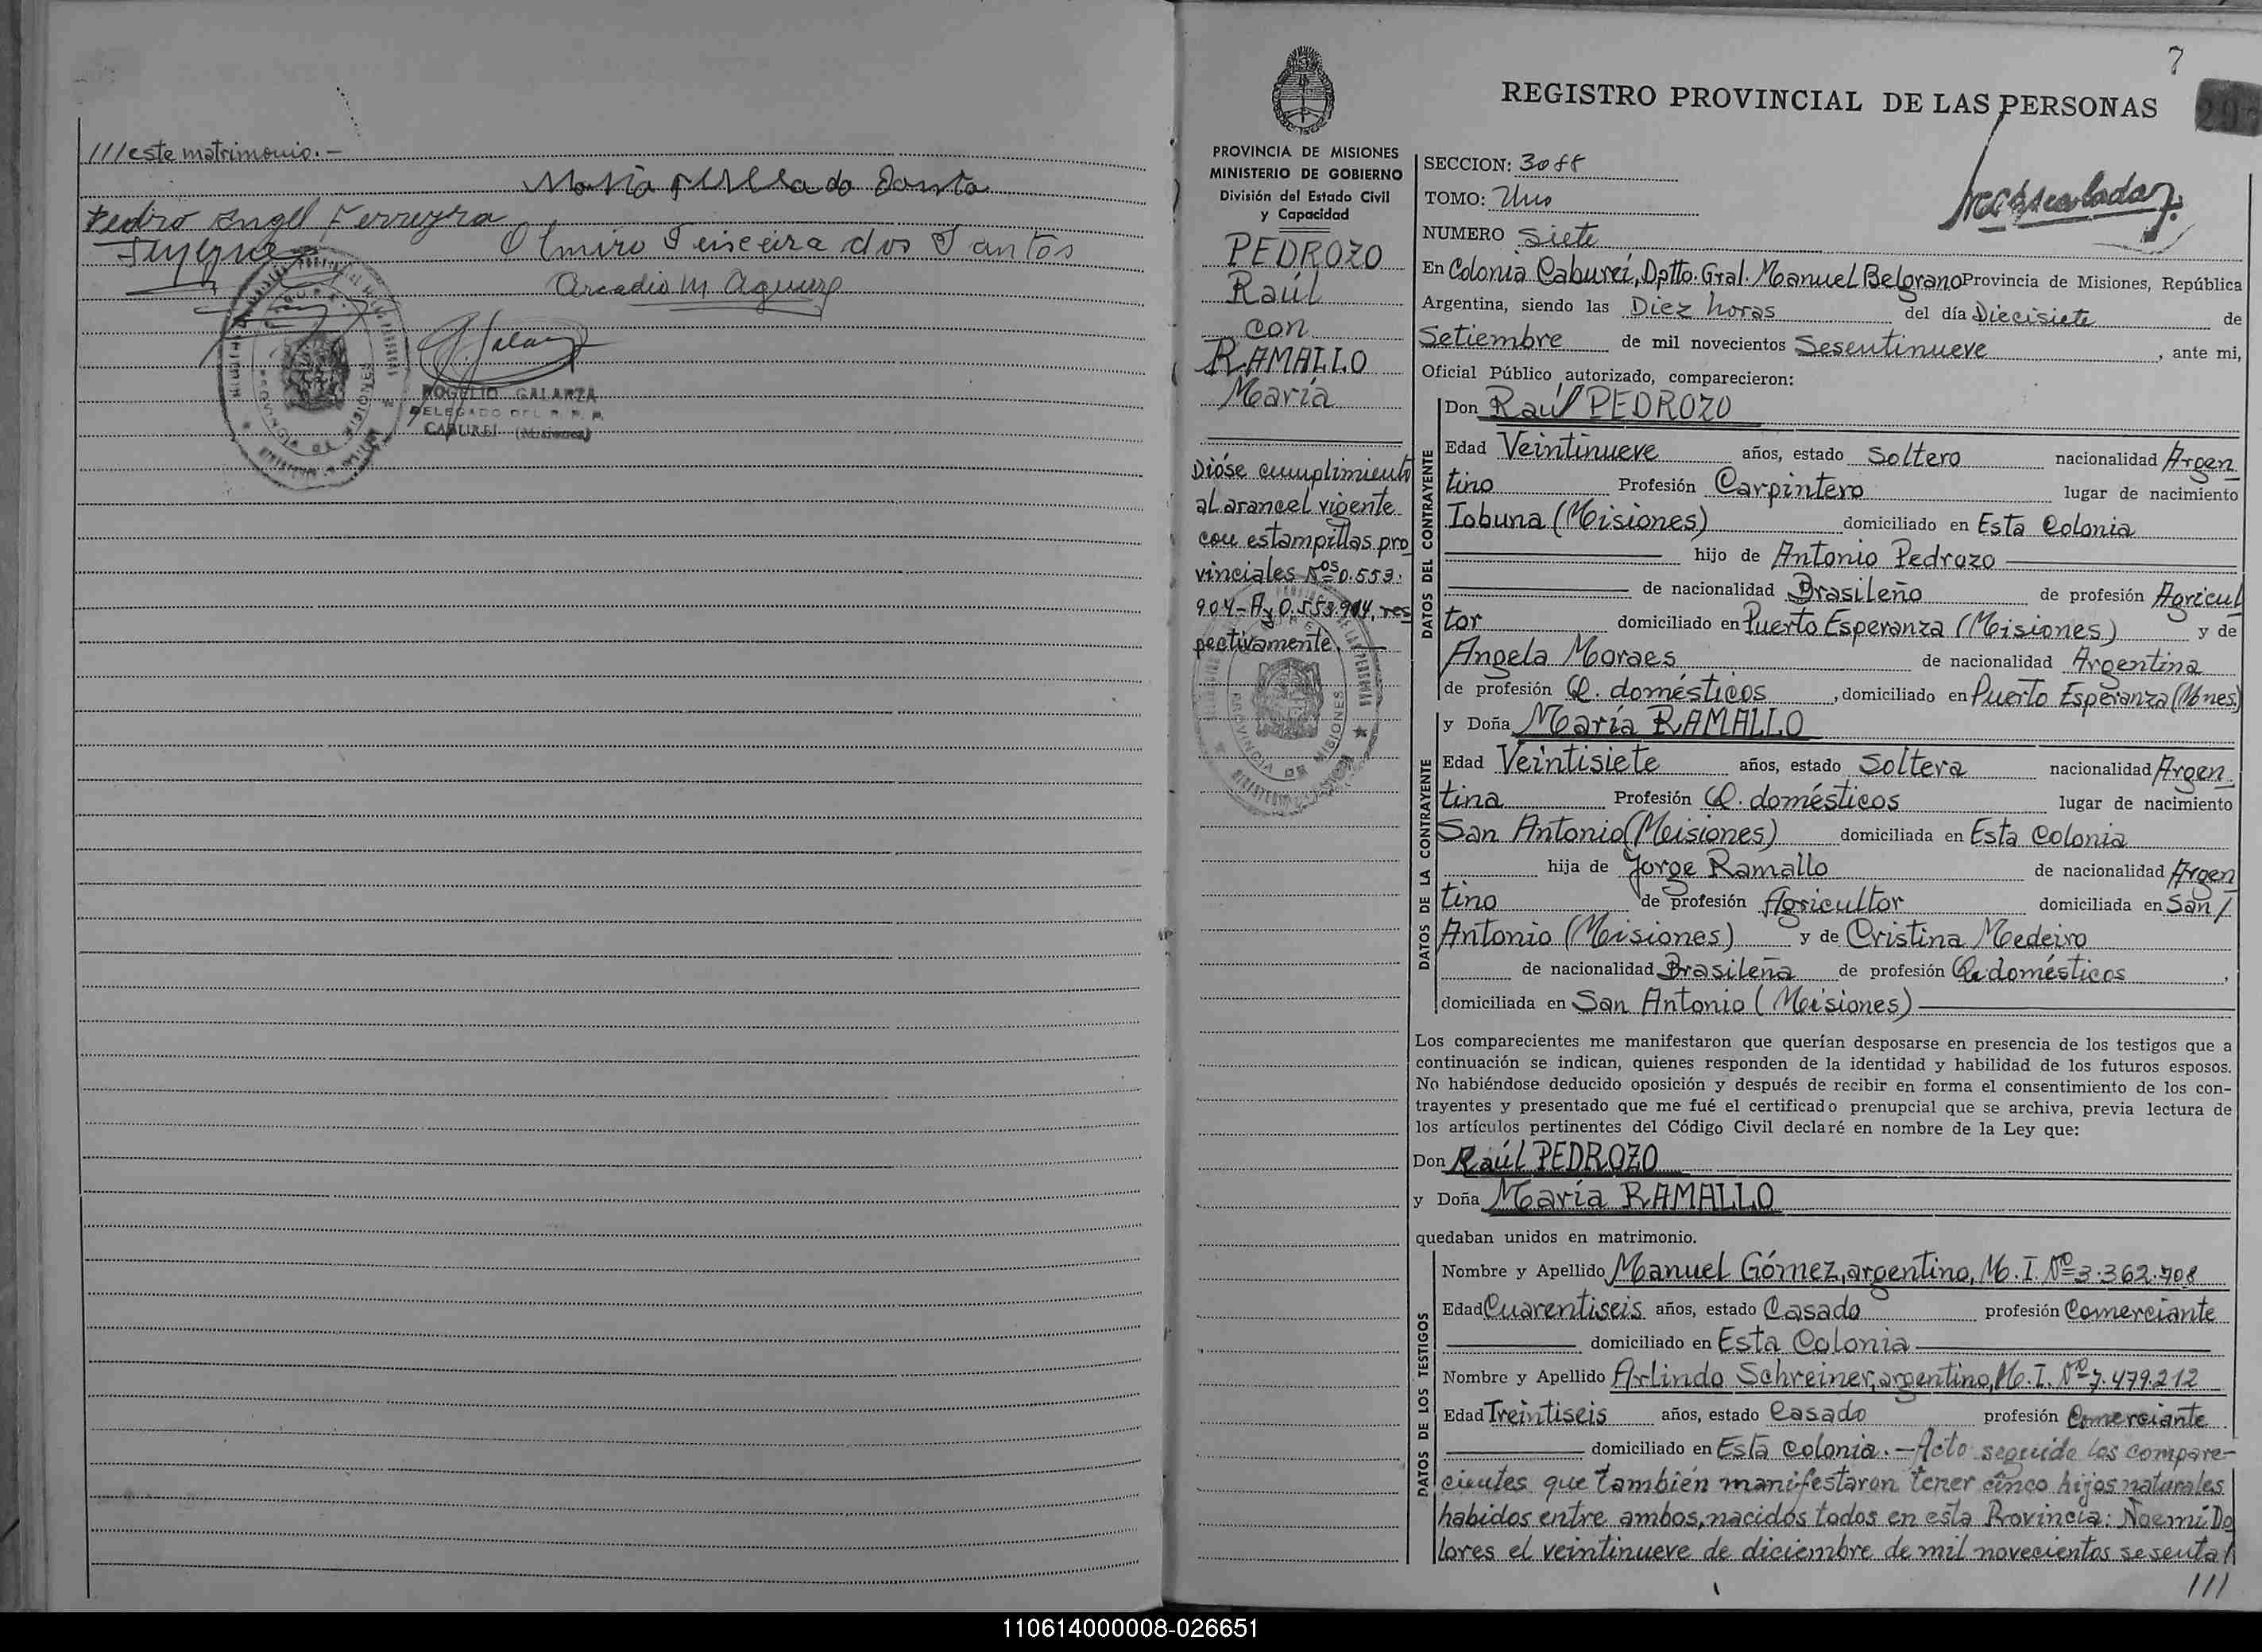 ///este matrimonio.-
Pedro Angel Ferreyra
Olmiro Teixeira dos Santos
Arcadio M Aguirre
ROGELIO GALARZA
DELEGADO DEL R. P. P.
CABUREI (Misiones)
PROVINCIA DE MISIONES
7
REGISTRO PROVINCIAL DE LAS PERSONAS
PROVINCIA DE MISIONES
MINISTERIO DE GOBIERNO
División del Estado Civil
y Capacidad
PEDROZO
Raúl
con
RAMALLO
María
Dióse cumplimiento
al arancel vigente
con estampillas pro
vinciales Nos 0.553.
904-A y 0.553.914, res
pectivamente.
PROVINCIA DE MISIONES
SECCION: 3088
TOMO: Uno
NUMERO Siete
En Colonia Caburei, Dptto. Gral. Manuel Belgrano Provincia de Misiones, República
Argentina, siendo las Diez horas del día Diecisiete de
Setiembre de mil novecientos Sesentinueve, ante mi,
Oficial Público autorizado, comparecieron:
DATOS DEL CONTRAYENTE
Don Raúl PEDROZO
Edad Veintinueve años, estado Soltero nacionalidad Argen
tino Profesión Carpintero lugar de nacimiento
Tobuna (Misiones) domiciliado en Esta Colonia
hijo de Antonio Pedrozo
de nacionalidad Brasileño de profesión Agricul
tor domiciliado en Puerto Esperanza (Misiones) y de
Angela Moraes de nacionalidad Argentina
de profesión Q. domésticos, domiciliado en Puerto Esperanza (Mnes.)
DATOS DE LA CONTRAYENTE
y Doña María RAMALLO
Edad Veintisiete años, estado Soltera nacionalidad Argen
tina Profesión Q. domésticos lugar de nacimiento
San Antonio (Misiones) domiciliada en Esta Colonia
hija de Jorge Ramallo de nacionalidad Argen
tino de profesión Agricultor domiciliada en San /
Antonio (Misiones) y de Cristina Medeiro
de nacionalidad Brasileña de profesión Q. domésticos,
domiciliada en San Antonio (Misiones)
Los comparecientes me manifestaron que querían desposarse en presencia de los testigos que a
continuación se indican, quienes responden de la identidad y habilidad de los futuros esposos.
No habiéndose deducido oposición y después de recibir en forma el consentimiento de los con-
trayentes y presentado que me fué el certificado prenupcial que se archiva, previa lectura de
los artículos pertinentes del Código Civil declaré en nombre de la Ley que:
Don Raúl PEDROZO
y Doña María RAMALLO
quedaban unidos en matrimonio.
DATOS DE LOS TESTIGOS
Nombre y Apellido Manuel Gómez, argentino, M.I. Nº 3.362.708
Edad Cuarentiseis años, estado Casado profesión Comerciante
domiciliado en Esta Colonia
Nombre y Apellido Arlindo Schreiner, argentino, M.I. Nº 7.479.212
Edad Treintiseis años, estado Casado profesión Comerciante
domiciliado en Esta Colonia.- Acto seguido los compare-
cientes que también manifestaron tener cinco hijos naturales
habidos entre ambos, nacidos todos en esta Provincia: Noemí Do
lores el veintinueve de diciembre de mil novecientos sesenta/
///
110614000008-026651